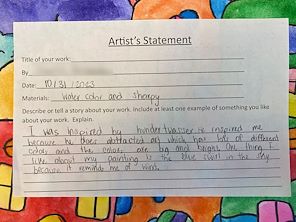 Artist's Statement
Title of your work:
By
Date: 10/31/2023
Materials: water color and sharpy
Describe or tell a story about your work. Include at least one example of something you like
about your work. Explain.
I was inspired by hundertwasser. He inspired me
because he does abstracted art which has lots of different
colors and the colors are big and bright. One thing I
like about my painting is the blue swirl in the sky
because it reminds me of wind.